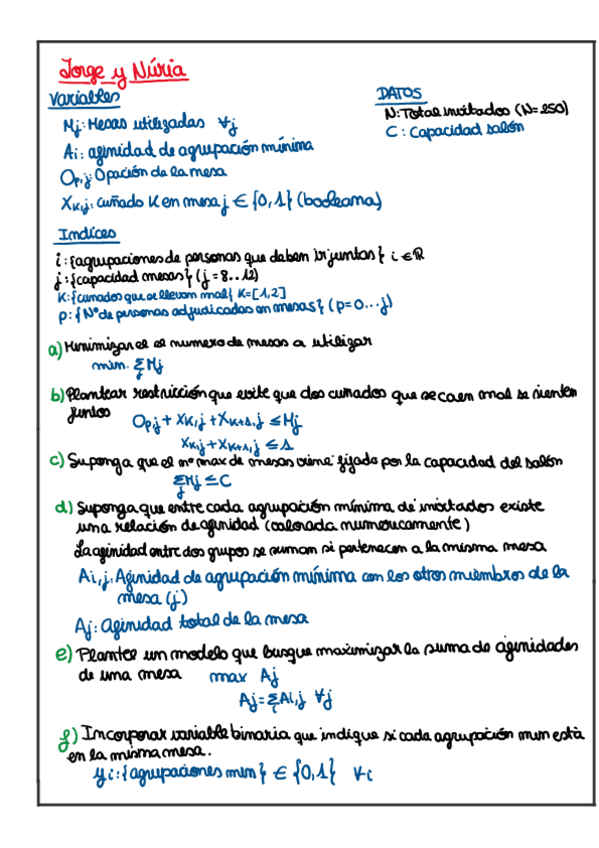 Jorge y Núria
Variables
Mj: Mesas utilizadas ∀j
Ai: afinidad de agrupación mínima
Op,j: Opación de la mesa
XK,j: cuñado K en mesa j ∈ {0,1} (booleana)
DATOS
N: Total invitados (N=250)
C: Capacidad salón
Indices
i: {agrupaciones de personas que deben ir juntas} i ∈ ℝ
j: {capacidad mesas} (j=8..12)
K: {cuñados que se llevan mal} K=[1,2]
p: {Nº de personas adjudicadas en mesas} (p=0...j)
a) Minimizar el número de mesas a utilizar
min. Σ Mj
j
b) Plantear restricción que evite que dos cuñados que se caen mal se sienten
juntos
Op,j + XK,j + XK+1,j ≤ Mj
XK,j + XK+1,j ≤ 1
c) Suponga que el nº max de mesas viene fijado por la capacidad del salón
Σ Mj ≤ C
j
d) Suponga que entre cada agrupación mínima de invitados existe
una relación de afinidad (valorada numéricamente)
La afinidad entre dos grupos se suman si pertenecen a la misma mesa
Ai,j: Afinidad de agrupación mínima con los otros miembros de la
mesa (j)
Aj: afinidad total de la mesa
e) Plantee un modelo que busque maximizar la suma de afinidades
de una mesa max Aj
Aj = Σ Ai,j ∀j
i
f) Incorporar variable binaria que indique si cada agrupación min está
en la misma mesa.
yi: {agrupaciones min} ∈ {0,1} ∀i